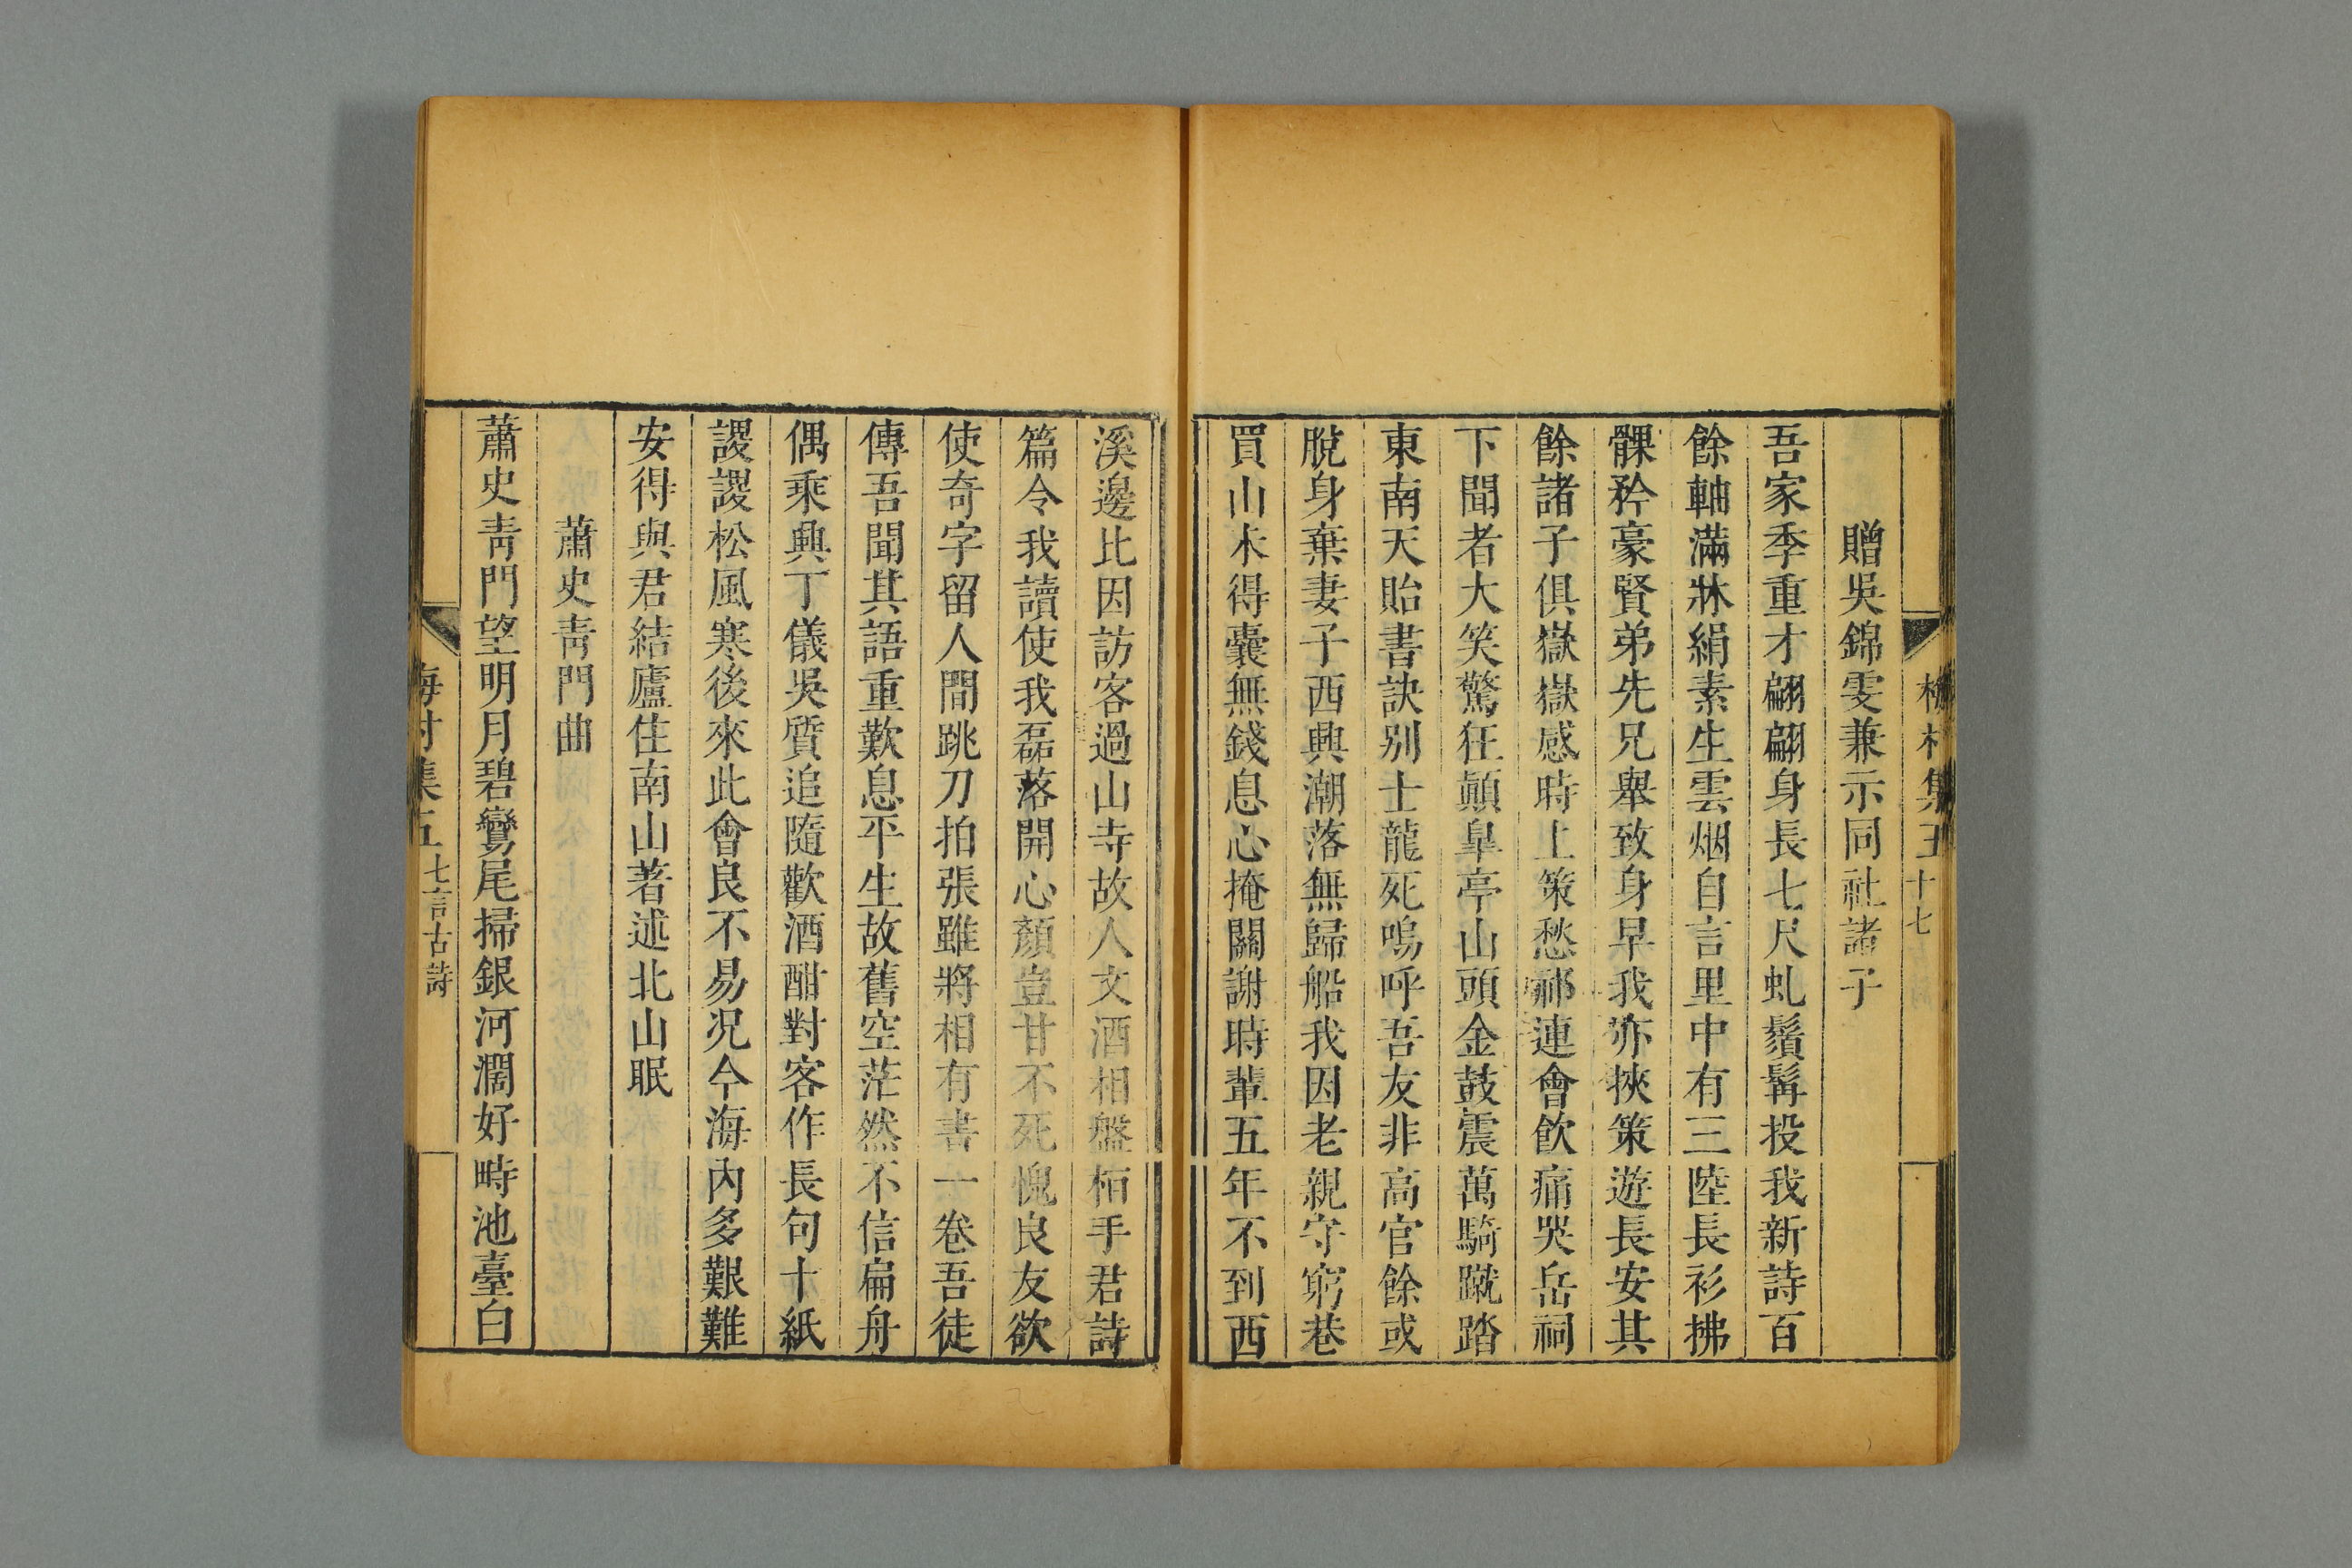 集五 十七
贈吳錦雯兼示同社諸子
吾家季重才翩翩身長七尺虬鬚髯投我新詩百
餘軸滿牀絹素生雲烟自言里中有三陸長衫拂
髁矜豪賢弟先兄舉致身早我亦挾策遊長安其
餘諸子俱嶽嶽感時上策愁祁連會飲痛哭岳祠
下聞者大笑驚狂顛臯亭山頭金鼓震萬騎蹴踏
東南天貽書訣別士龍死嗚呼吾友非高官餘或
脫身棄妻子西興潮落無歸船我因老親守窮巷
買山未得囊無錢息心掩關謝時輩五年不到西
溪邊比因訪客過山寺故人文酒相盤桓手君詩
篇令我讀使我磊落開心顏豈甘不死愧良友欲
使奇字留人間跳刀拍張雖將相有書一卷吾徒
傳吾聞其語重歎息平生故舊空茫然不信扁舟
偶乘興丁儀吳質追隨歡酒酣對客作長句十紙
謖謖松風寒後來此會良不易况今海內多艱難
安得與君結廬住南山著述北山眠
蕭史青門曲
蕭史青門望明月碧鸞尾掃銀河濶好畤池臺白
集五 七言古詩